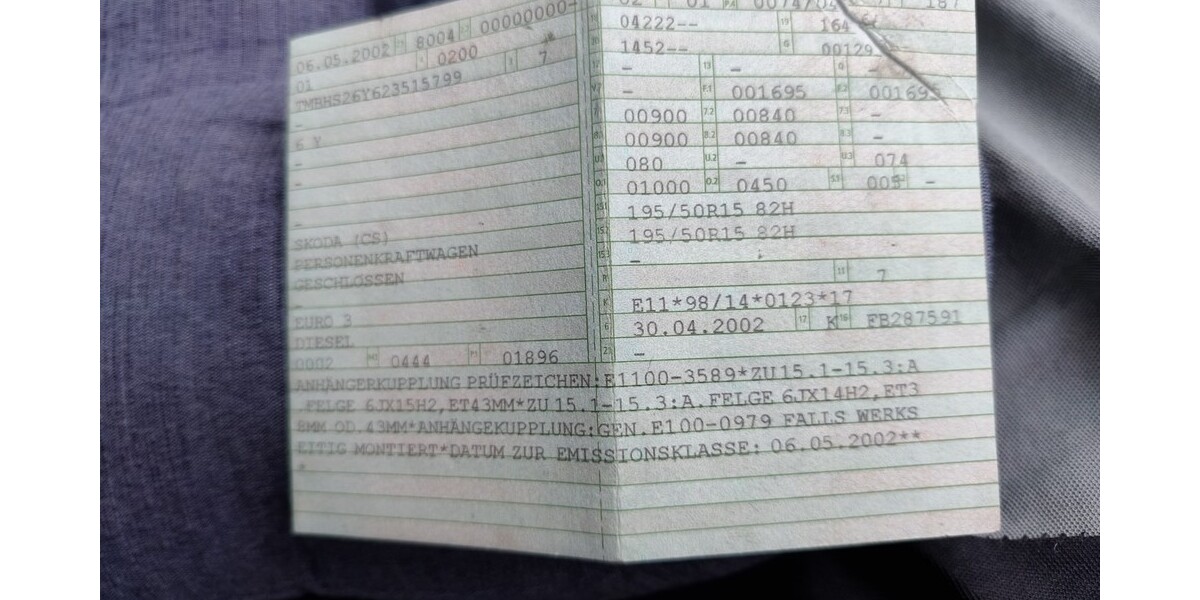 06.05.2002 8004 00000000-
01 0200 7
TMBHS26Y623515799
-
6 Y
-
-
-
-
SKODA (CS)
PERSONENKRAFTWAGEN
GESCHLOSSEN
-
EURO 3
DIESEL
0002 0444 01896
02 01 0074/04 187
04222-- 19 164
1452-- G 00129 --
- 13 - Q -
- F.1 001695 F.2 001695
00900 7.2 00840 7.3 -
00900 8.2 00840 8.3 -
080 U.2 - U.3 074
O.1 01000 O.2 0450 S.1 005 S.2 -
15.1 195/50R15 82H
15.2 195/50R15 82H
15.3 -
R 11 7
K E11*98/14*0123*17
6 30.04.2002 17 K 16 FB287591
21 -
ANHÄNGERKUPPLUNG PRÜFZEICHEN:E1100-3589*ZU15.1-15.3:A
.FELGE 6JX15H2,ET43MM*ZU15.1-15.3:A.FELGE 6JX14H2,ET3
8MM OD.43MM*ANHÄNGEKUPPLUNG:GEN.E100-0979 FALLS WERKS
EITIG MONTIERT*DATUM ZUR EMISSIONSKLASSE: 06.05.2002**
*